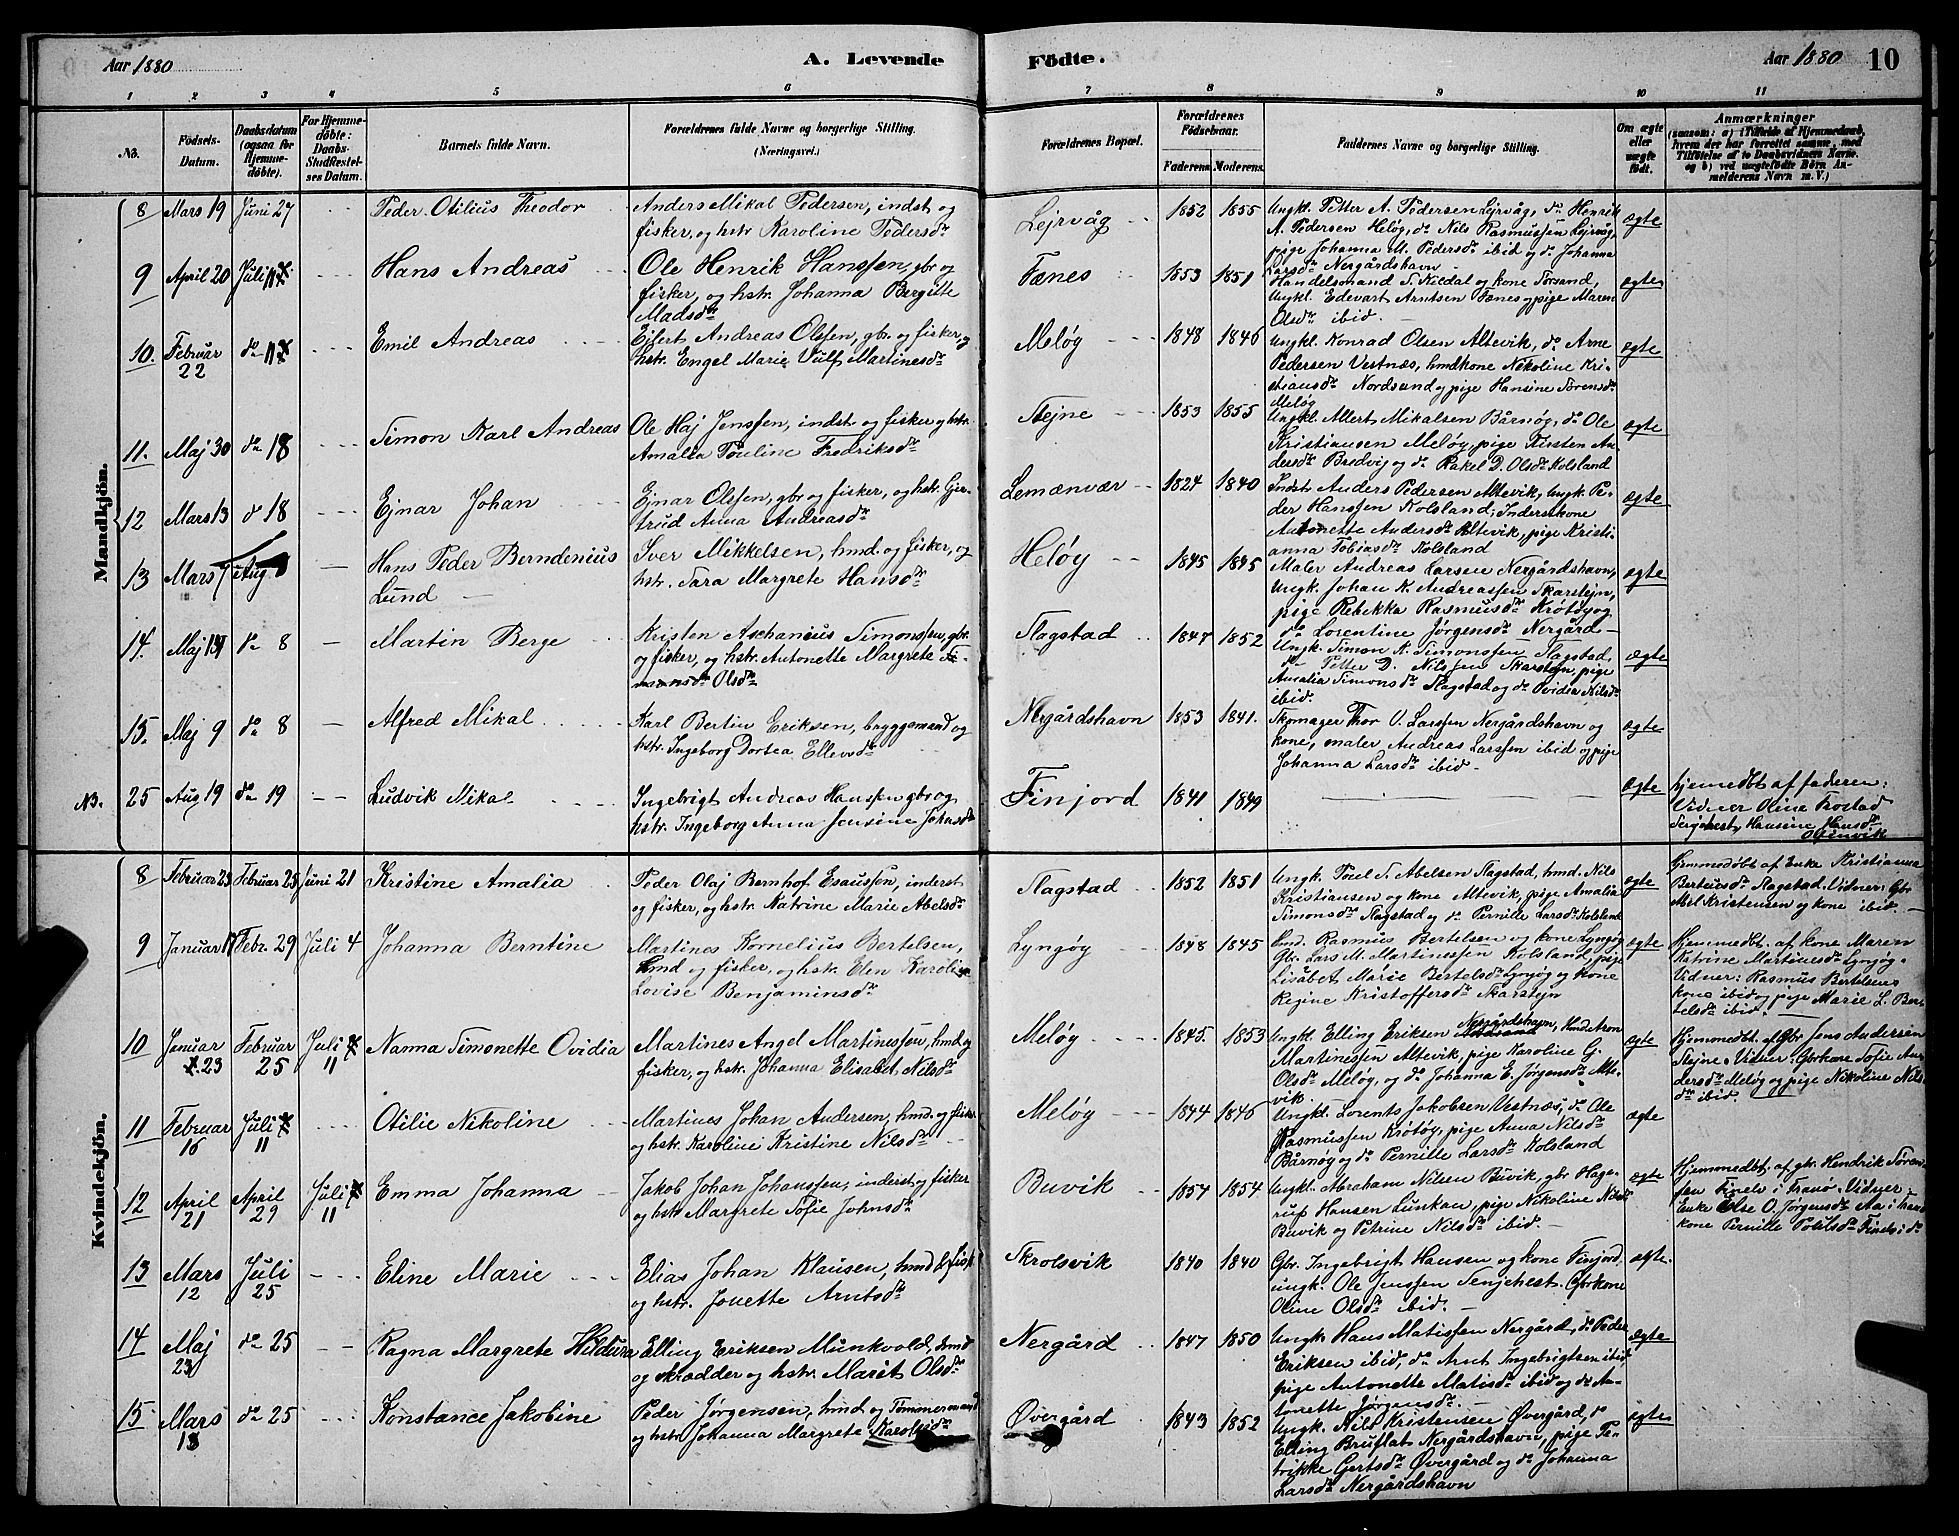 Aar 1880
A. Levende
Födte.
Aar 1880
10
1 2 3 4 5 6 7 8 9 10 11
No.
Födsels-
Datum.
Daabsdatum
(ogsaa for
Hjemme-
döbte).
For Hjemme-
döbte:
Daabs-
Stadfæstel-
ses Datum.
Barnets fulde Navn.
Forældrenes fulde Navne og borgerlige Stilling.
(Næringsvei.)
Forældrenes Bopæl.
Forældrenes
Födselsaar.
Faderens Moderens
Faddernes Navne og borgerlige Stilling.
Om ægte
eller
uægte
født.
Anmærkninger
(saasom: a) i Tilfælde af Hjemmedaab,
hvem der har forrettet samme, med
Tilföielse af to Daabsvidners Navne,
og b) ved uægtefödte Börn An-
melderens Navn m. V.)
Mandkjön.
8 Mars 19 Juni 27
Peder Otilius Theodor
Anders Mikal Pedersen, indst og
fisker, og hstr Karoline Pedersdr
Lejrvåg
1852 1855
Ungkl. Petter A. Pedersen Lejrvåg, do Henrik
A. Pedersen Heløg, do Nils Rasmussen Lejrvåg,
pige Johanna M. Pedersdr ibid og do Johanna
Larsdr Nergårdshavn
ægte
9 April 20 Juli 11
Hans Andreas
Ole Henrik Hanssen, gbr og
fisker, og hstr. Johanna Bergitte
Madsdr
Fænes
1853 1851
Handelsmand S. Kildal og kone Forsand,
Ungkl. Edevart Arntsen Fænes og pige Maren
Olsdr ibid.
ægte
10. Februar 22 do 11
Emil Andreas
Ejlert Andreas Olssen, gbr. og fisker, og
hstr. Engel Marie Vulf Martinesdr
Meløy
1848 1846
Ungkl. Konrad Olsen Altevik, do Arne
Pedersen Vestnæs, hmdkone Nikoline Kri-
stiansdr Nordsand og pige Hansine Sørensdr
Meløg
ægte
11. Maj 30 do 18
Simon Karl Andreas
Ole Haj Jenssen, indst og fisker og hstr.
Amalia Pouline Fredriksdr
Stejne
1853 1855
Ungkl. Albert Mikalsen Bårnøg, do Ole
Kristiansen Meløy, pige Kirsten An-
dersdr Bredvig og do Rakel D. Olsdr Kolsland
ægte
12 Mars 13 do 18
Ejnar Johan
Ejnar Olssen, gbr og fisker, og hstr. Gjer-
trud Anna Andreasdr
Lemænvær
1824 1840
Indst Anders Pedersen Altevik, Ungk. Pe-
der Hanssen Kolsland, Inderstkone
Antonette Andersdr Altevik, pige Kristi-
anna Tobiasdr Kolsland
ægte
13 Mars 7 Aug 1
Hans Peder Berndenius
Lund
Iver Mikkelsen, hmd. og fisker, og
hstr. Sara Margrete Hansdr
Heløy
1845 1845
Maler Andreas Larsen Nergårdshavn,
Ungk. Johan K. Andreassen Skarstejn,
pige Rebekka Rasmusdr Krøtøy og
do Lorentine Jørgensdr Nergård
ægte
14. Maj 19 do 8
Martin Berge
Kristen Aschanius Simonssen, gbr.
og fisker, og hstr. Antonette Margrete
Olsdr
Flagstad
1847 1852
Ungk. Simon K. Simonssen Flagstad,
do Petter D. Nilssen Skarstejn, pige
Amalia Simonsdr Flagstad og do Ovidia Nilsdr
ibid.
ægte
15. Maj 9 do 8
Alfred Mikal
Karl Bertin Eriksen, bryggemand og
hstr. Ingeborg Dortea Ellevsdr
Nergårdshavn
1853 1841.
Skomager Thor U. Larssen Nergårdshavn og
kone, maler Andreas Larssen ibid og pige
Johanna Larsdr ibid.
ægte
NB. 25 Aug 19 do 19
Ludvik Mikal
Ingebrigt Andreas Hanssen gbr og
hstr. Ingeborg Anna Jensine Johnsdr
Finjord
1841 1849
ægte
hjemmedbt af faderen:
Vidner Oline Frostad
Senjehest, Hansine Hansdr
Kvindekjön.
8 Februar 23 Februar 25 Juni 21
Kristine Amalia
Peder Olaj Bernhof Esaussen, inderst
og fisker, og hstr. Katrine Marie Abelsdr
Flagstad
1852 1851
Ungk. Poiel S. Abelsen Flagstad, hmd. Nils
Kristiansen og kone Altevik, pige Amalia
Simonsdr Flagstad og do Pernille Larsdr Kolsland
ægte
Hjemmedöbt af Enke Kristianna
Berteusdr Flagstad. Vidner: Gbr
Abel Kristensen og kone ibid.
9 Januar 17 Febr. 29 Juli 4
Johanna Berntine
Martines Kornelius Bertelsen,
hmd og fisker, og hstr. Elen Karoline
Lovise Benjaminsdr
Lyngøy
1848 1845
Hmd. Rasmus Bertelsen og kone Lyngøy
Gbr. Lars M. Martinessen Kolsland, pige
Lisabet Marie Bertelsdr Lyngøy og kone
Regine Kristoffersdr Skarstejn
ægte
Hjemmedbt. af kone Maren
Katrine Martinesdr Lyngøg.
Vidner: Rasmus Bertelsens
kone ibid og pige Marie L. Ber-
telsdr ibid.
10 Januar 23 Februar 25 Juli 11
Nanna Simonette Ovidia
Martines Angel Martinessen, hmd og
fisker, og hstr. Johanna Elisabet Nilsdr
Meløy
1845. 1853
Ungk. Elling Eriksen Nergårdshavn, Hmd Aron
Martinessen Altevik, pige Karoline G.
Olsdr Meløg, og do Johanna E. Jørgensdr Alte-
vik.
ægte
Hjemmedbt. af Gbr Jens Andersen
Stejne. Vidner: Gbrkone Sofie An-
dersdr Meløg og pige Nikoline Nils-
dr ibid.
11 Februar 16 Juli 11
Otilie Nikoline
Martines Johan Andersen, hmd. og fisk.
og hstr. Karoline Kristine Nilsdr
Meløy
1844 1846
Ungkl. Lorents Jakobsen Vestnæs, do Ole
Rasmussen Krøtøy, pige Anna Nilsdr
Bårnøg og do Pernille Larsdr Kolsland
ægte
12 April 21 April 29 Juli 11
Emma Johanna
Jakob Johan Johanssen, inderst og fisker
og hstr Margrete Sofie Johnsdr
Buvik
1854 1854
Ungkl. Abraham Nilsen Buvik, gbr Hage-
rup Hansen Lunkan, pige Nikoline Nilsdr
Buvik og Petrine Nilsdr ibid.
ægte
Hjemmedbt. af gbr. Hendrik Søren-
sen Finels i Tranø. Vidner:
Enke Else O. Jørgensdr Aa i Tranø
kone Pernille Povelsdr Finels i do
13 Mars 12 Juli 25
Eline Marie
Elias Johan Klausen, hmd og fisk
og hstr. Jonette Arntsdr
Skrolsvik
1840 1840
Gbr. Ingebrigt Hansen og kone Finjord,
ungk. Ole Jenssen Senjehest. Gbrkone
Oline Olsdr ibid.
ægte.
14 Maj 23 do 25
Ragna Margrete Hildura
Elling Eriksen Munkvold, hmd
og skrædder og hstr. Marit Olsdr
Nergård
1847 1850
Ungk. Hans Matissen Nergård, do Peder
Eriksen ibid, do Arnt Ingebrigtsen ibid,
pige Antonette Matisdr ibid og do An-
tonette Jørgensdr
ægte
15 Mars 13 do 25
Konstance Jakobine
Peder Jørgensen, hmd og Tömmermand
og hstr. Johanna Margrete
Øvergård
1843 1852
Ungk. Nils Kristensen Øvergård, do
Elling Bruflat Nergårdshavn, pige Pe-
trikke Gertsdr Øvergård og do Johanna
Larsdr Nergårdshavn
ægte